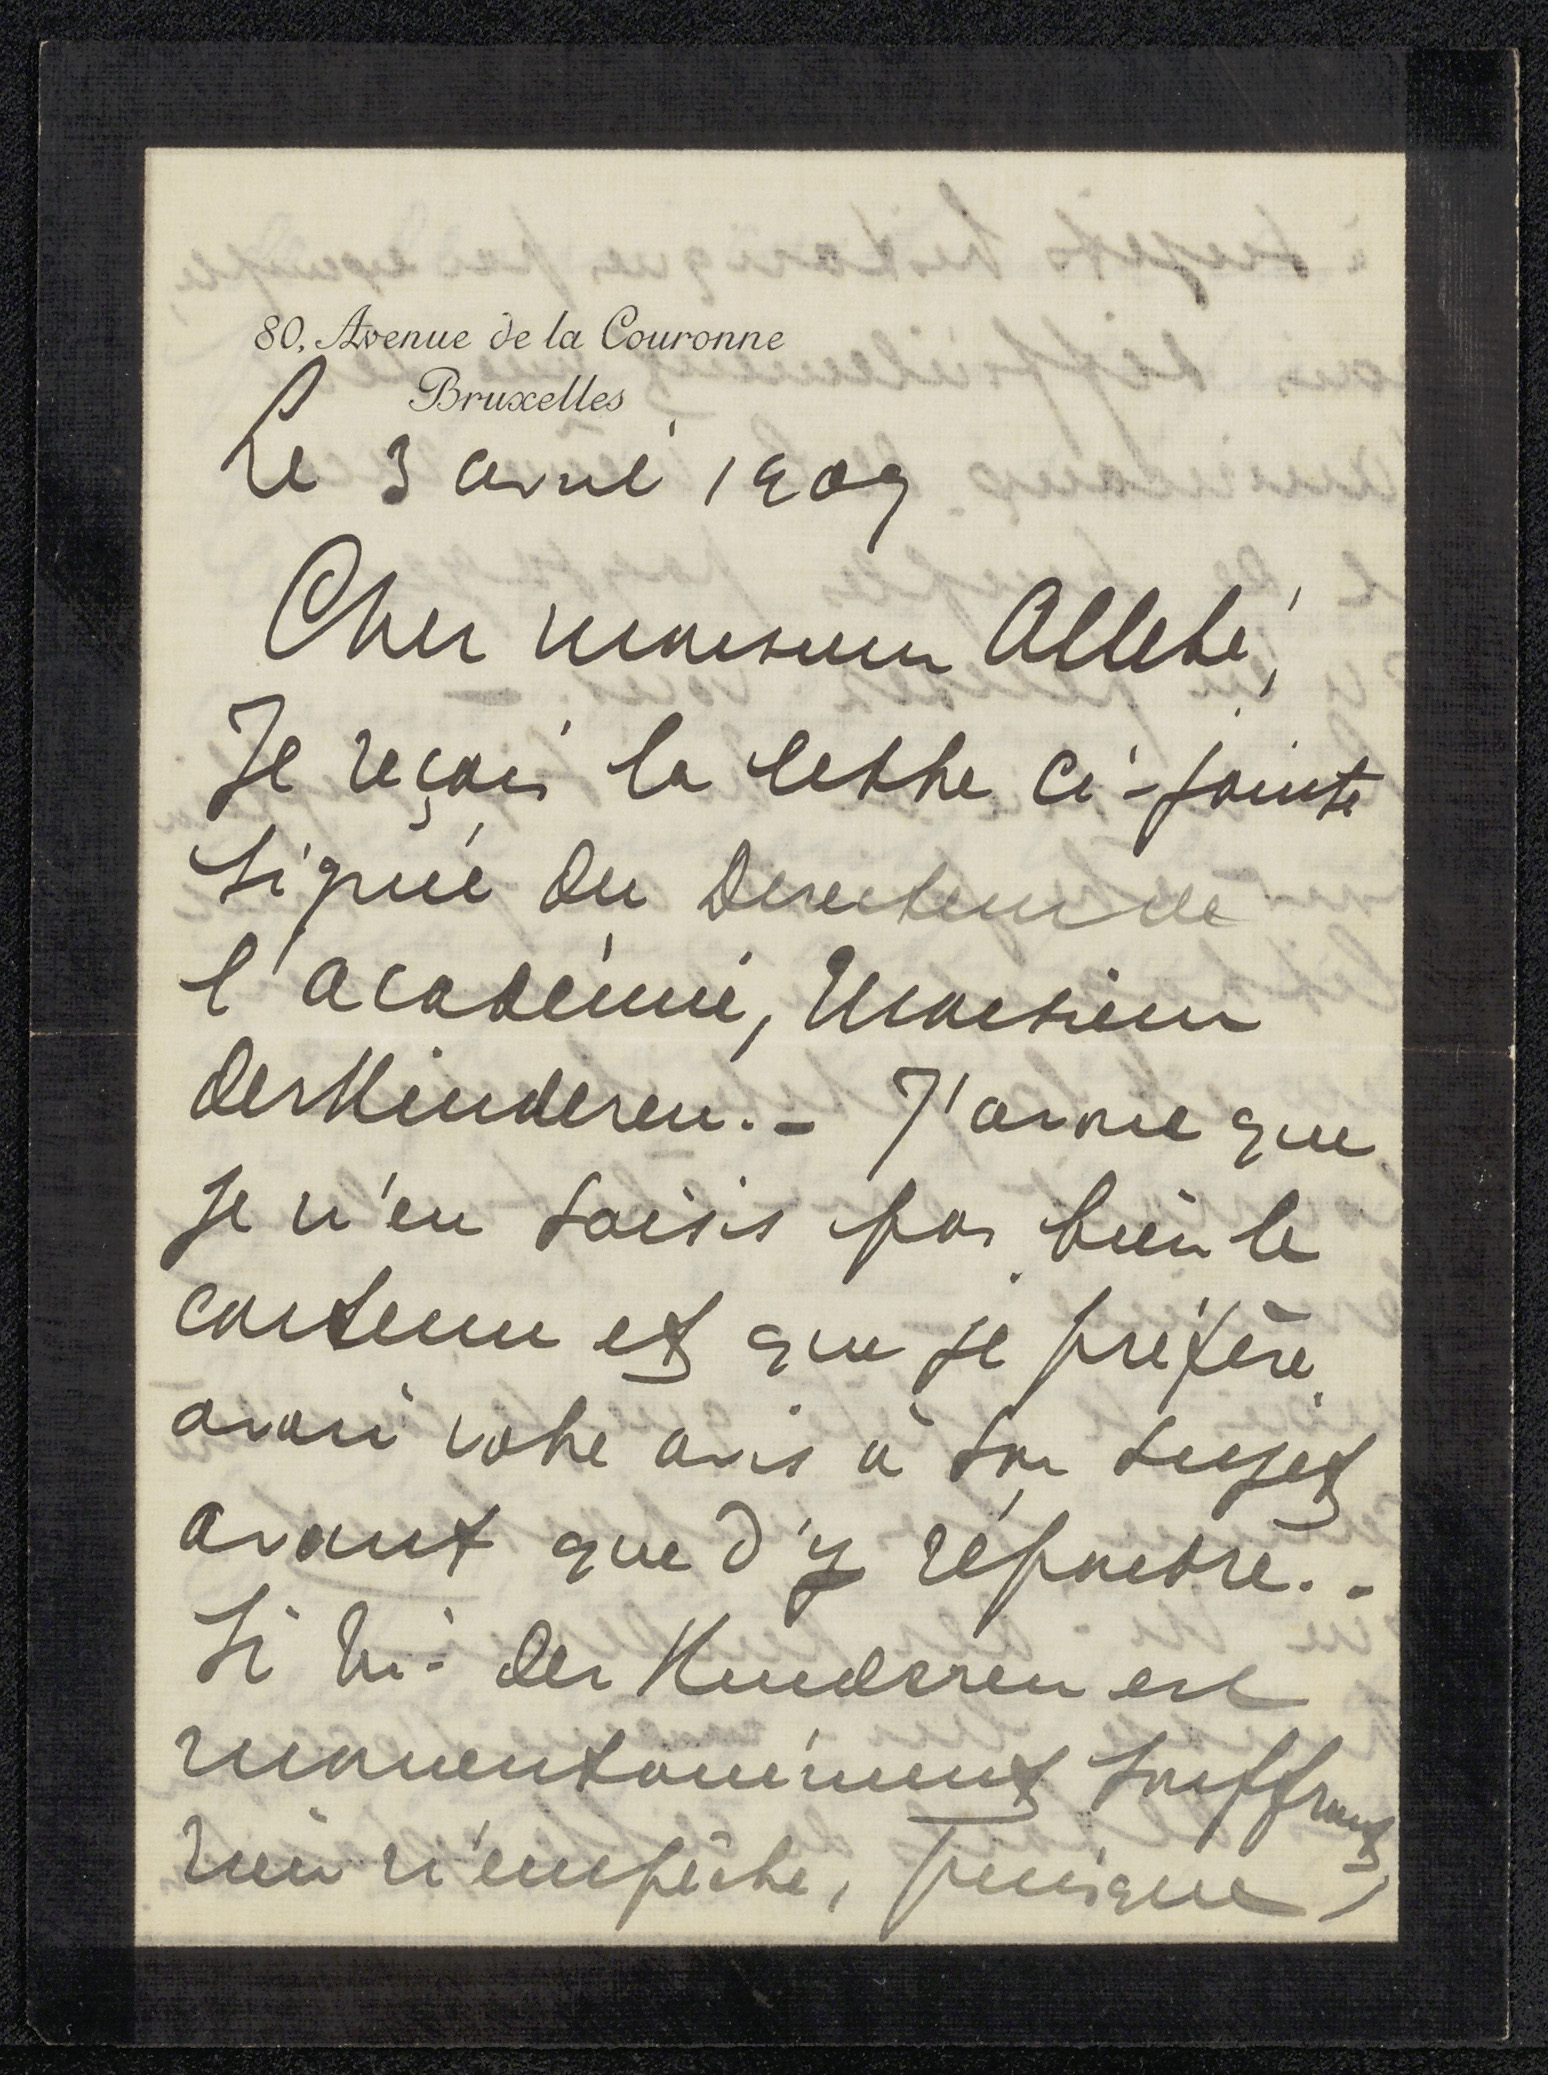 80, Avenue de la Couronne
Bruxelles
Le 3 avril 1909
Cher monsieur Allebé,
Je reçois la lettre ci-jointe
signée du Directeur de
l'académie, Monsieur
DerKinderen. - J'avoue que
je n'en saisis pas bien le
contenu et que je préfère
avoir votre avis à son sujet
avant que d'y répondre. -
Si M. Der Kinderen est
momentanément souffrant
rien n'empêche, puisque,